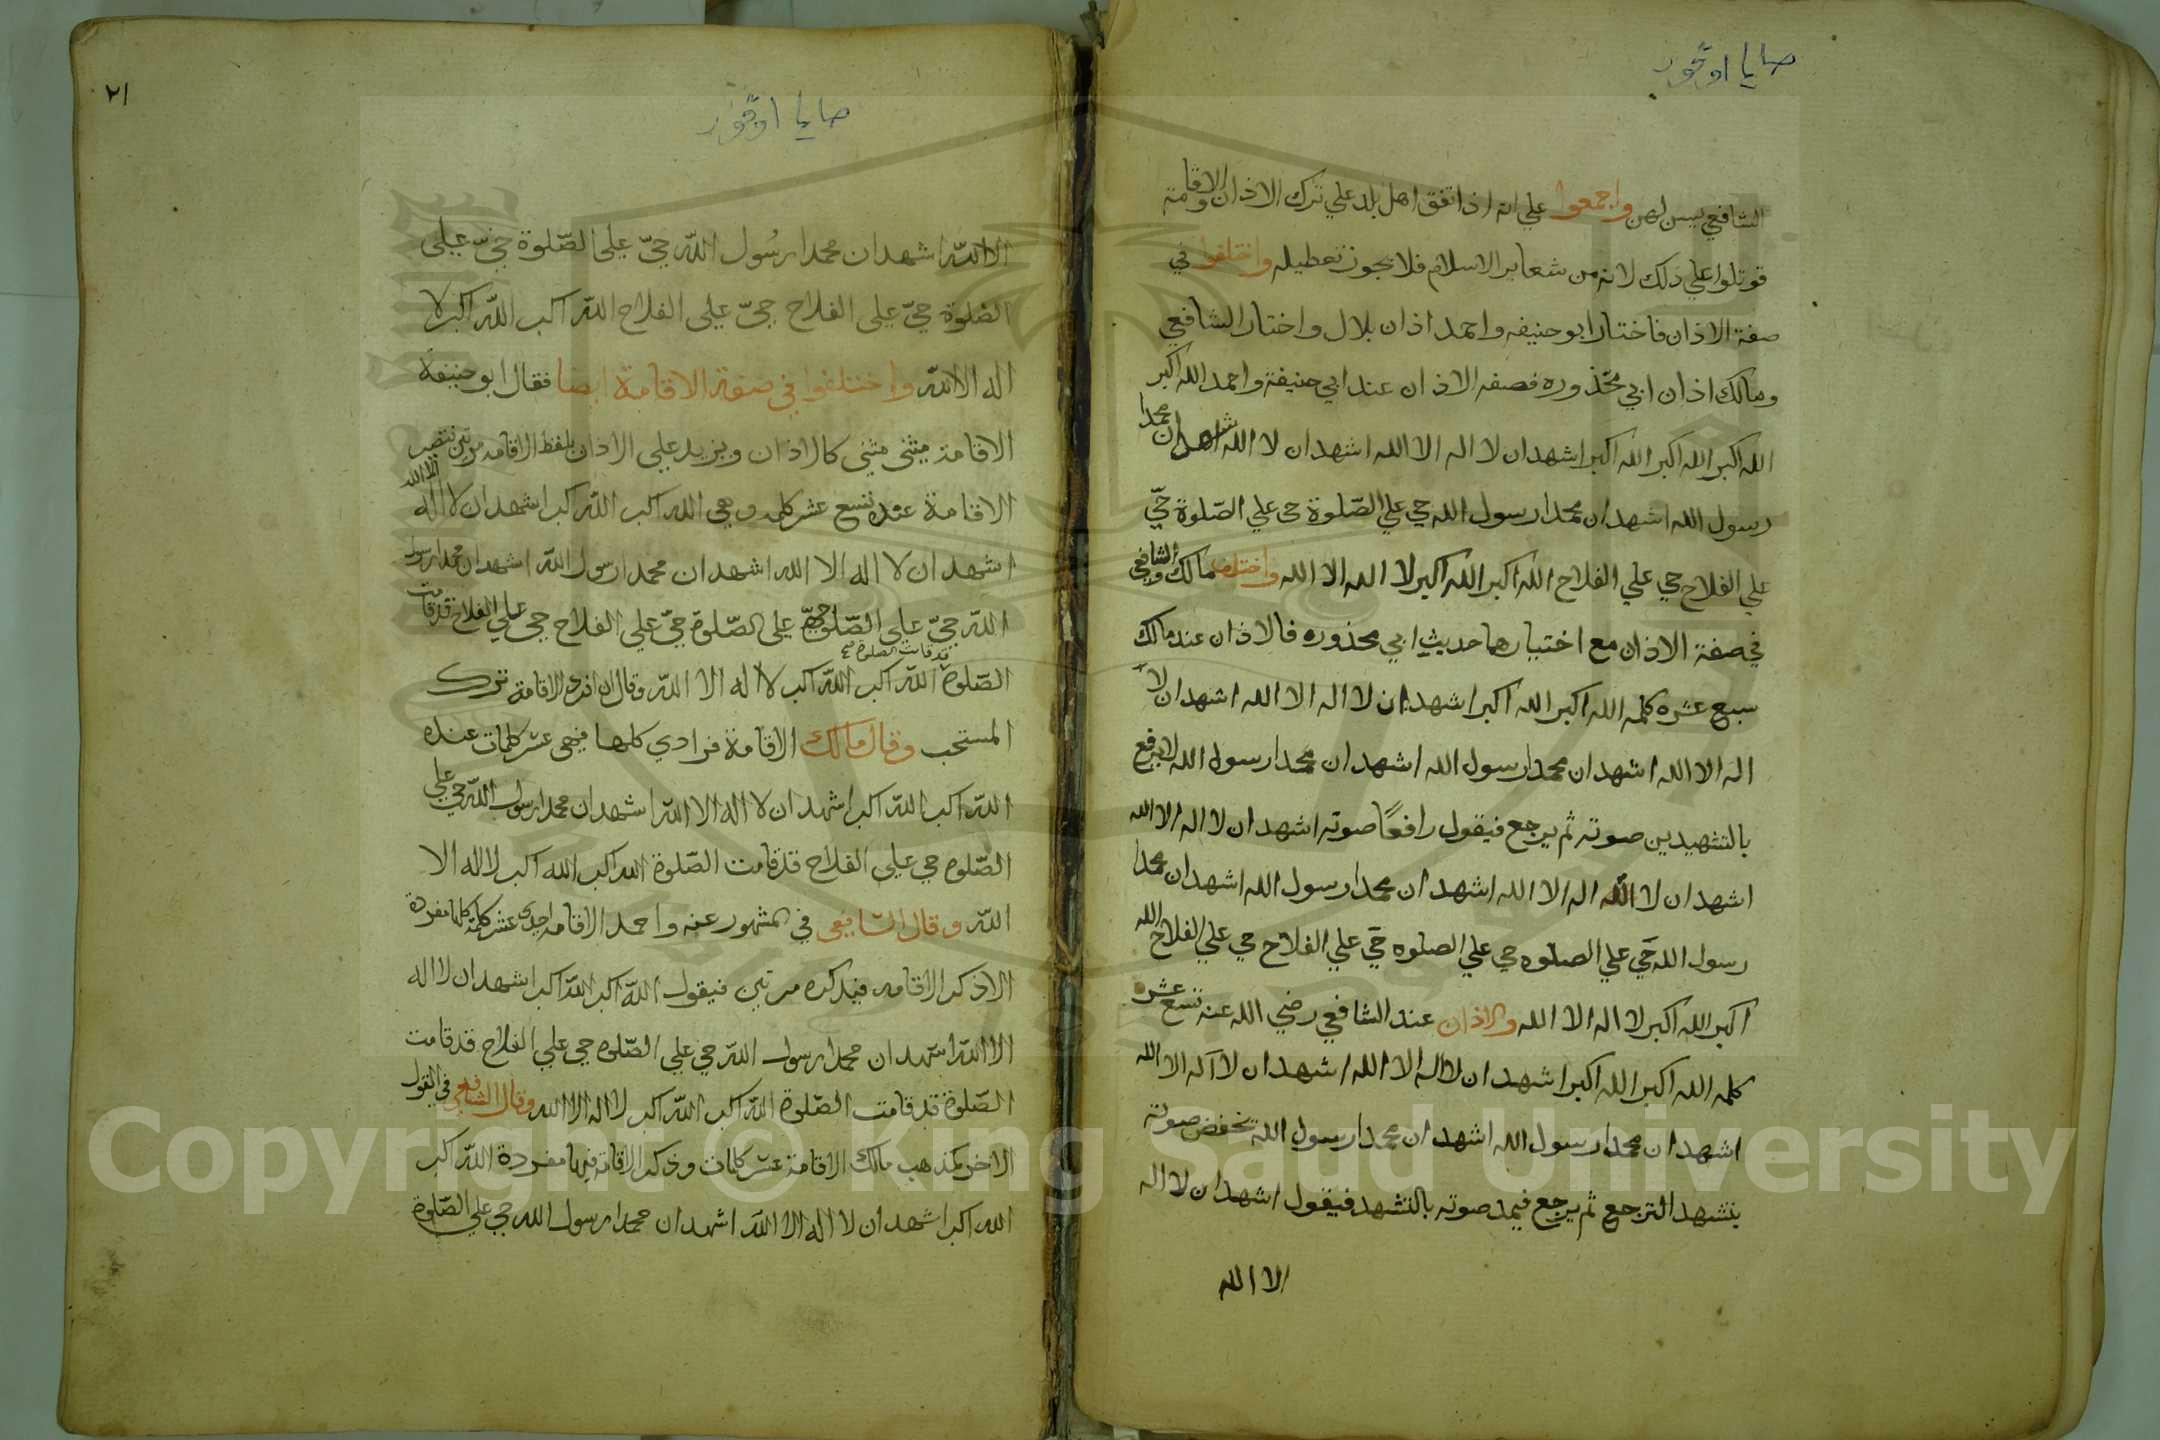 الشافعي يسن لهن واجمعوا علي انه اذا اتفق اهل بلد علي ترك الاذان والاقامة
قوتلوا علي ذلك لانه من شعاير الاسلام فلا يجوز تعطيله واختلفوا في
صفة الاذان فاختار ابو حنيفه واحمد اذان بلال واختار الشافعي
ومالك اذان ابي محذوره فصفه الاذان عند ابي حنيفة واحمد الله اكبر
الله اكبر الله اكبر الله اكبر اشهد ان لا اله الا الله اشهد ان لا الله اشهد ان محمدا
رسول الله اشهد ان محمدا رسول الله حي علي الصّلوة حي علي الصّلوة حيّ
علي الفلاح حي علي الفلاح الله اكبر الله اكبر لا اله الا الله واختلف مالك والشافعي
في صفة الاذان مع اختيارهما حديث ابي محذوره فالاذان عند مالك
سبع عشره كلمه الله اكبر الله اكبر اشهد ان لا اله الا الله اشهد ان لا
اله الا الله اشهد ان محمدا رسول الله اشهد ان محمدا رسول الله لا يرفع
بالتشهيدين صوته ثم يرجع فيقول رافعًا صوته اشهد ان لا اله الا الله
اشهد ان لا الله اله الا الله اشهد ان محمدا رسول الله اشهد ان محمدا
رسول الله حي علي الصلوه حي علي الصلوه حي علي الفلاح حي علي الفلاح الله
اكبر الله اكبر لا اله الا الله والاذان عند الشافعي رضي الله عنه تسع عشر
كلمه الله اكبر الله اكبر اشهد ان لا اله الا الله اشهد ان لا اله الا الله
اشهد ان محمدا رسول الله اشهد ان محمدا رسول الله يخفض صوته
بتشهد الترجع ثم يرجع فيمد صوته بالتشهد فيقول اشهد ان لا اله
الا الله
٢١
الا الله اشهد ان محمدا رسُول الله حيّ علي الصّلوة حيّ علي
الصّلوة حيّ علي الفلاح حيّ علي الفلاح الله اكبر الله اكبر لا
اله الا الله واختلفوا في صفة الاقامة ايضا فقال ابو حنيفة
الاقامة مثنى مثنى كالاذان ويزيد علي الاذان بلفظ الاقامه مرتين فتصير
الاقامة عنده تسع عشر كلمه وهي الله اكبر الله اكبر اشهد ان لا اله الا الله
اشهد ان لا اله الا الله اشهد ان محمدا رسول الله اشهد ان محمدا رسول
الله حيّ علي الصّلوة حيّ علي الصّلوة حيّ علي الفلاح حي علي الفلاح قد قامت
قد قامت الصلوة صح
الصّلوة الله اكبر الله اكبر لا اله الا الله وقال ان افرد الاقامة ترك
المستحب وقال مالك الاقامة فرادي كلها فهي عشر كلمات عنده
الله اكبر الله اكبر اشهد ان لا اله الا الله اشهد ان محمدا رسول الله حي علي
الصّلوه حي علي الفلاح قد قامت الصّلوة الله اكبر الله اكبر لا اله الا
الله وقال الشافعي في المشهور عنه واحمد الاقامه احدي عشر كلمة كلها مفردة
الا ذكر الاقامه فيذكره مرتين فيقول الله اكبر الله اكبر اشهد ان لا اله
الا الله اشهد ان محمدا رسول الله حي علي الصّلوه حي علي الفلاح قد قامت
الصّلوة قد قامت الصّلوة الله اكبر الله اكبر لا اله الا الله وقال الشافعي في القول
الاخر كمذهب مالك الاقامة عشر كلمات وذكر الاقامة فيها مفردة الله اكبر
الله اكبر اشهد ان لا اله الا الله اشهد ان محمدا رسول الله حي علي الصّلوة
Copyright © King Saud University